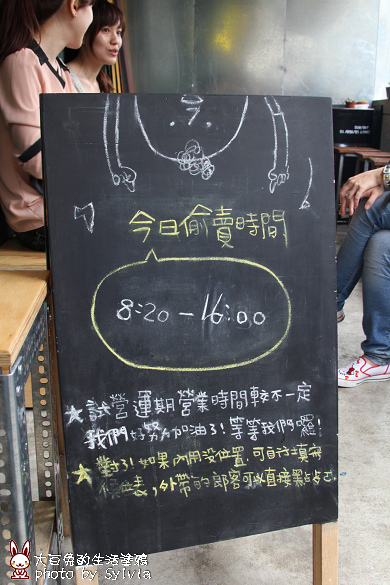 今日偷賣時間
8:20-16:00
★試營運期營業時間較不一定
我們好努力加油了!等等我們囉!
★對了!如果內用沒位置,可自行填寫
候位表,外帶的郎客可以直接點占ㄛ!
大百兔的生活塗鴉
photo by Sylvia